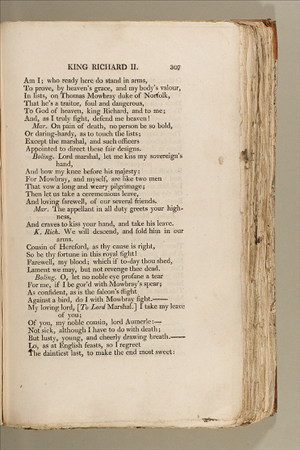 KING RICHARD II. 207
Am I; who ready here do stand in arms,
To prove, by heaven's grace, and my body's valour,
In lists, on Thomas Mowbray duke of Norfolk,
That he's a traitor, foul and dangerous,
To God of heaven, king Richard, and to me;
And, as I truly fight, defend me heaven!
Mar. On pain of death, no person be so bold,
Or daring-hardy, as to touch the lists;
Except the marshal, and such officers
Appointed to direct these fair designs.
Boling. Lord marshal, let me kiss my sovereign's
hand,
And bow my knee before his majesty:
For Mowbray, and myself, are like two men
That vow a long and weary pilgrimage;
Then let us take a ceremonious leave,
And loving farewell, of our several friends.
Mar. The appellant in all duty greets your high-
ness,
And craves to kiss your hand, and take his leave.
K. Rich. We will descend, and fold him in our
arms.
Cousin of Hereford, as thy cause is right,
So be thy fortune in this royal fight!
Farewell, my blood; which if to-day thou shed,
Lament we may, but not revenge thee dead.
Boling. O, let no noble eye profane a tear
For me, if I be gor'd with Mowbray's spear;
As confident, as is the falcon's flight
Against a bird, do I with Mowbray fight.——
My loving lord, [To Lord Marshal.] I take my leave
of you;
Of you, my noble cousin, lord Aumerle:—
Not sick, although I have to do with death;
But lusty, young, and cheerly drawing breath.——
Lo, as at English feasts, so I regreet
The daintiest last, to make the end most sweet: